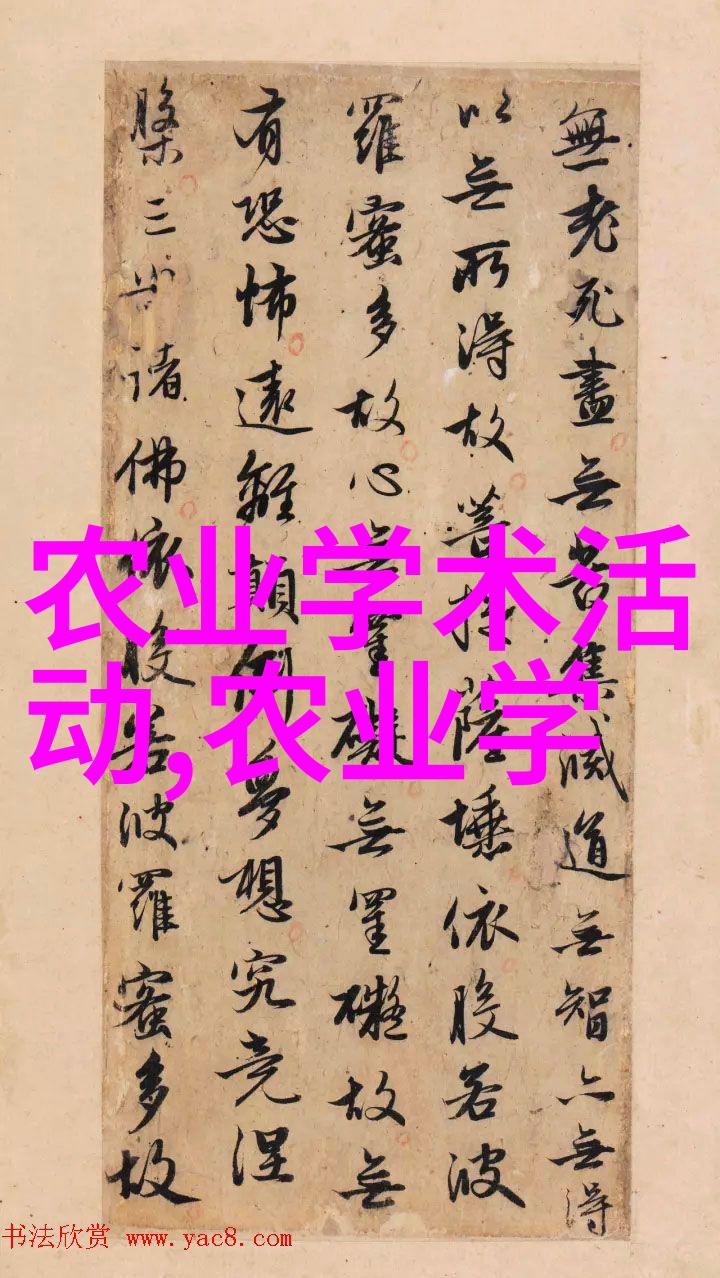 無老死盡无苦集滅道无智亦无得
以无所得故菩提薩埵依般若波
羅蜜多故心无罣礙无罣礙故无
有恐怖遠離顛倒夢想究竟涅
槃三世諸佛依般若波羅蜜多故
农业学术活
动,农业学
书法欣赏 www.yac8.com